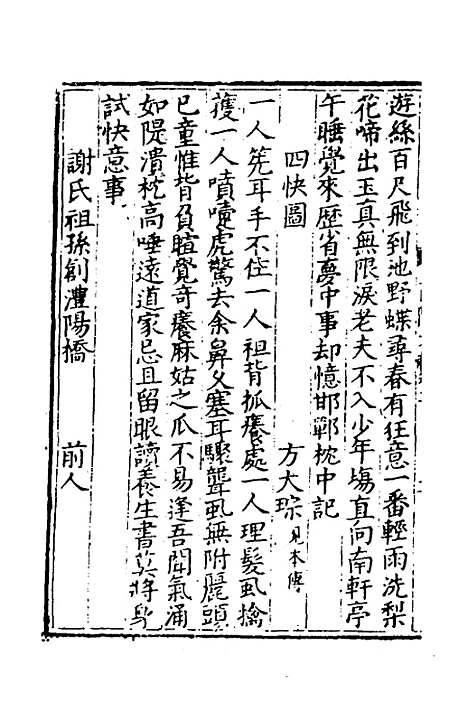 遊絲百尺飛到池野蝶尋春有狂意一番輕雨洗梨
花啼出玉真無限淚老夫不入少年場直向南軒亭
午睡覺來歷省夢中事却憶邯鄲枕中記
四快圖 方大琮 見本傳
一人筅耳手不住一人袒背抓癢處一人理髮虱擒
獲一人噴嚏虎驚去余鼻久塞耳驟聾虱無附麗頭
已童惟背負暄覺奇癢麻姑之爪不易逢吾聞氣涌
如隄潰枕高唾遠道家忌且留眼讀養生書莫將身
試快意事
謝氏祖孫創澧陽橋 前人